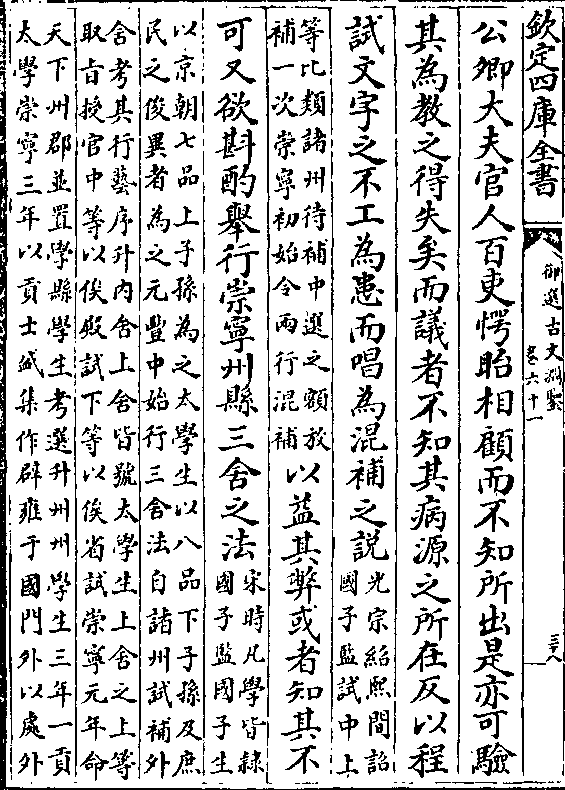 欽定四庫全書
御選古文淵鑒
卷六十一
三十八
公卿大夫官人百吏愕眙相顧而不知所出是亦可驗
其為教之得失矣而議者不知其病源之所在反以程
試文字之不工為患而唱為混補之說
光宗紹熙間詔
國子監試中上
等比類諸州待補中選之額放
補一次崇寧初始令兩行混補
以益其弊或者知其不
可又欲斟酌舉行崇寧州縣三舍之法
宋時凡學皆隸
國子監國子生
以京朝七品上子孫為之太學生以八品下子孫及庶
民之俊異者為之元豐中始行三舍法自諸州試補外
舍考其行藝序升内舍上舍皆號太學生上舍之上等
取旨授官中等以俟殿試下等以俟省試崇寧元年命
天下州郡並置學縣學生考選升州州學生三年一貢
太學崇寧三年以貢士盛集作辟雍于國門外以處外